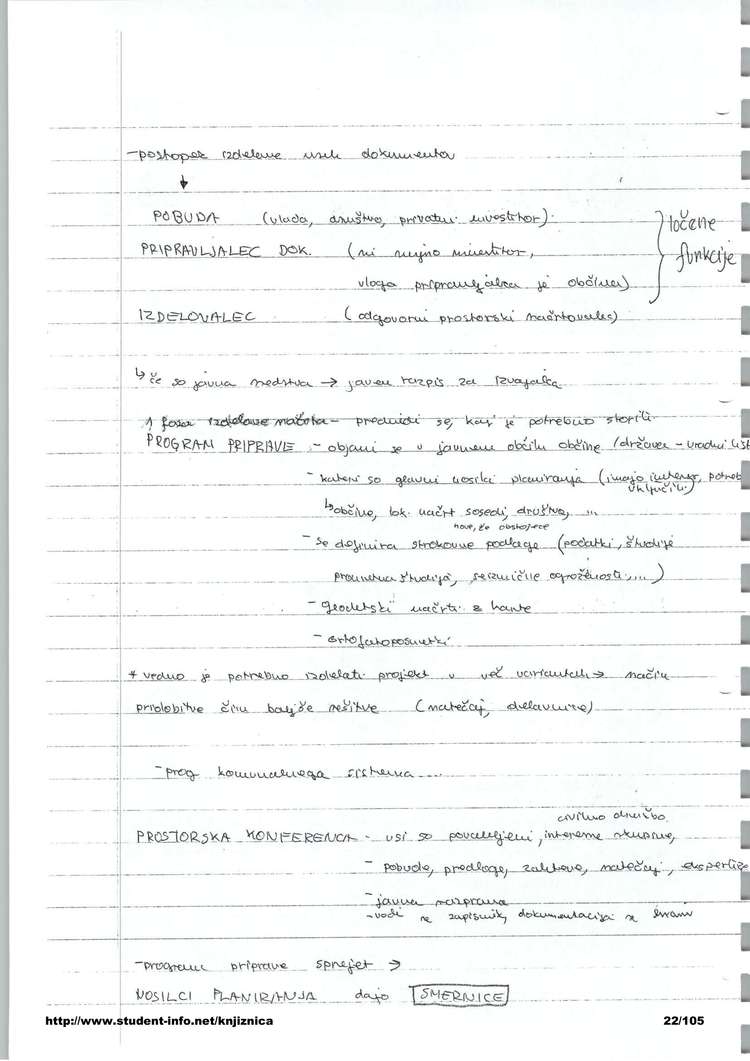 - postopek izdelave vseh dokumentov
↓
POBUDA (vlada, društvo, privatni investitor)
PRIPRAVLJALEC DOK. (ni nujno investitor,
vloga pripravljalca je občina)
ločene
funkcije
IZDELOVALEC (odgovorni prostorski načrtovalec)
↳ če so javna sredstva → javen razpis za izvajalca
1 faza izdelave načrta - predvidi se, kaj je potrebno storiti
PROGRAM PRIPRAVE - objavi se v javnem občilu občine (državen - uradni list
- kateri so glavni nosilci planiranja (imajo interes, potreb
vključiti)
↳ občine, lok. načrt sosedi, društva, ...
nove, že obstoječe
- se definira strokovne podlage (podatki, študije
prometna študija, seizmične ogroženosti, ...)
- geodetski načrti z karte
- ortofotoposnetki
* vedno je potrebno izdelati projekt v več variantah → način
pridobitve čim boljše rešitve (natečaj, delavnice)
- prog komunalnega sistema ....
civilno družbo
PROSTORSKA KONFERENCA - vsi so povabljeni, interesne skupine,
- pobude, predloge, zahteve, natečaj, ekspertize
- javna razprava
- vodi se zapisnik, dokumentacija se hrani
- program priprave sprejet →
NOSILCI PLANIRANJA dajo SMERNICE
http://www.student-info.net/knjiznica
22/105